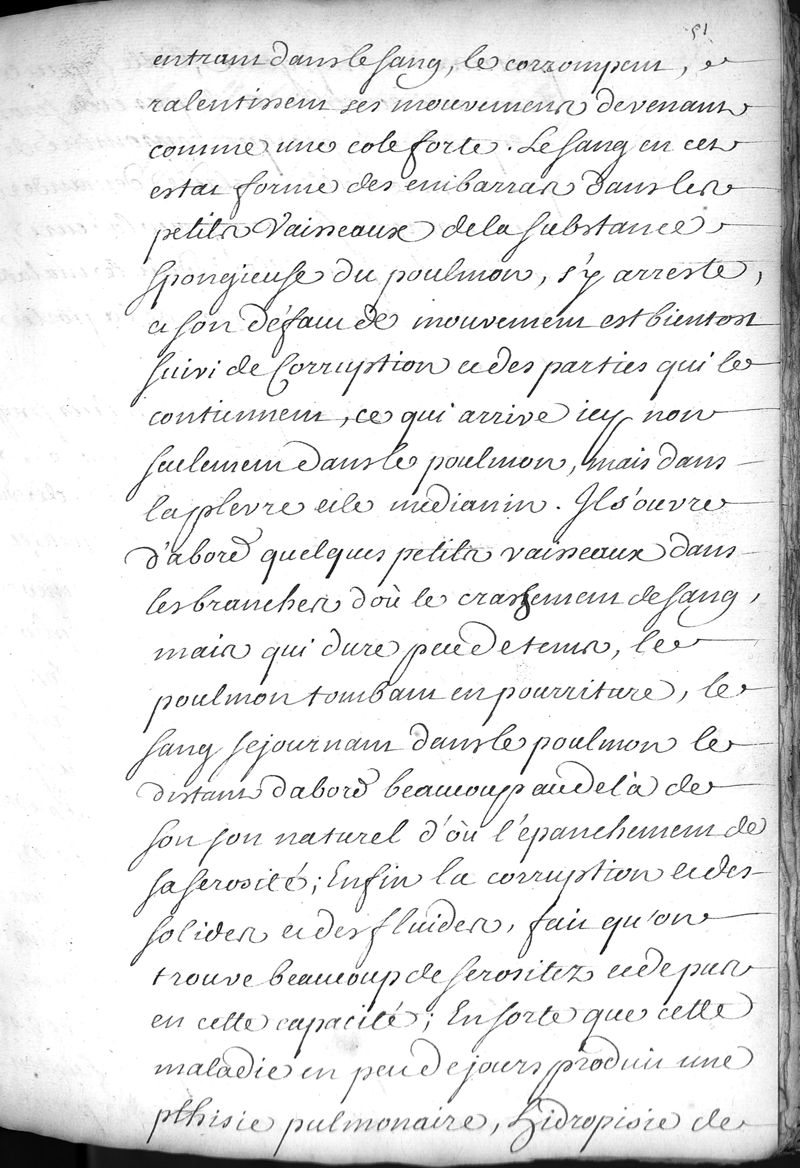 51
entrant dans le sang, le corrompent, et
ralentissent ses mouvements devenant
comme une cole forte. Le sang en cet
estat forme des embarras dans les
petits Vaisseaux de la substance
spongieuse du poulmon, s'y arreste,
et son défaut de mouvement est bientost
suivi de Corruption et des parties qui le
contiennent, ce qui arrive icy non
seulement dans le poulmon, mais dans
la plevre et le mediastin. Il s'ouvre
d'abord quelques petits vaisseaux dans
les branches d'où le crachement de sang,
mais qui dure peu de tems, le
poulmon tombant en pourriture, le
sang sejournant dans le poulmon le
distant d'abord beaucoup au dela de
son son naturel d'où l'épanchement de
sa serosité; Enfin la corruption et des
solides et des fluides, fait qu'on
trouve beaucoup de serositez et de pus
en cette capacité; En sorte que cette
maladie en peu de jours produit une
pthisie pulmonaire, hidropisie de